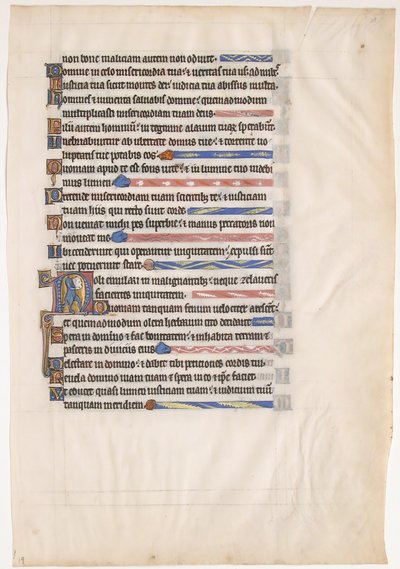 non bone maliciam autem non odiuit.
Domine in celo misericordia tua: et ueritas tua usq: ad nubes.
Iusticia tua sicut montes dei: iudicia tua abissus multa.
Homines et iumenta saluabis domine: quemadmodum
multiplicasti misericordiam tuam deus.
Filii autem hominum: in tegmine alarum tuarum sperabunt.
Inebriabuntur ab ubertate domus tue: et torrente uo
luptatis tue potabis eos.
Quoniam apud te est fons uite: et in lumine tuo uidebi
mus lumen.
Pretende misericordiam tuam scientibus te: et iusticiam
tuam hiis qui recto sunt corde.
Non ueniat michi pes superbie: et manus peccatoris non
moueat me.
Ibi ceciderunt qui operantur iniquitatem: expulsi sunt
nec potuerunt stare.
Noli emulari in malignantibus: neque zelaueris
facientes iniquitatem.
Quoniam tanquam fenum uelociter arescent:
et quemadmodum olera herbarum cito decident.
Spera in domino et fac bonitatem: et inhabita terram et
pasceris in diuiciis eius.
Delectare in domino: et dabit tibi peticiones cordis tui.
Reuela domino uiam tuam et spera in eo et ipse faciet.
Et educet quasi lumen iusticiam tuam: et iudicium tuum
tanquam meridiem.
19